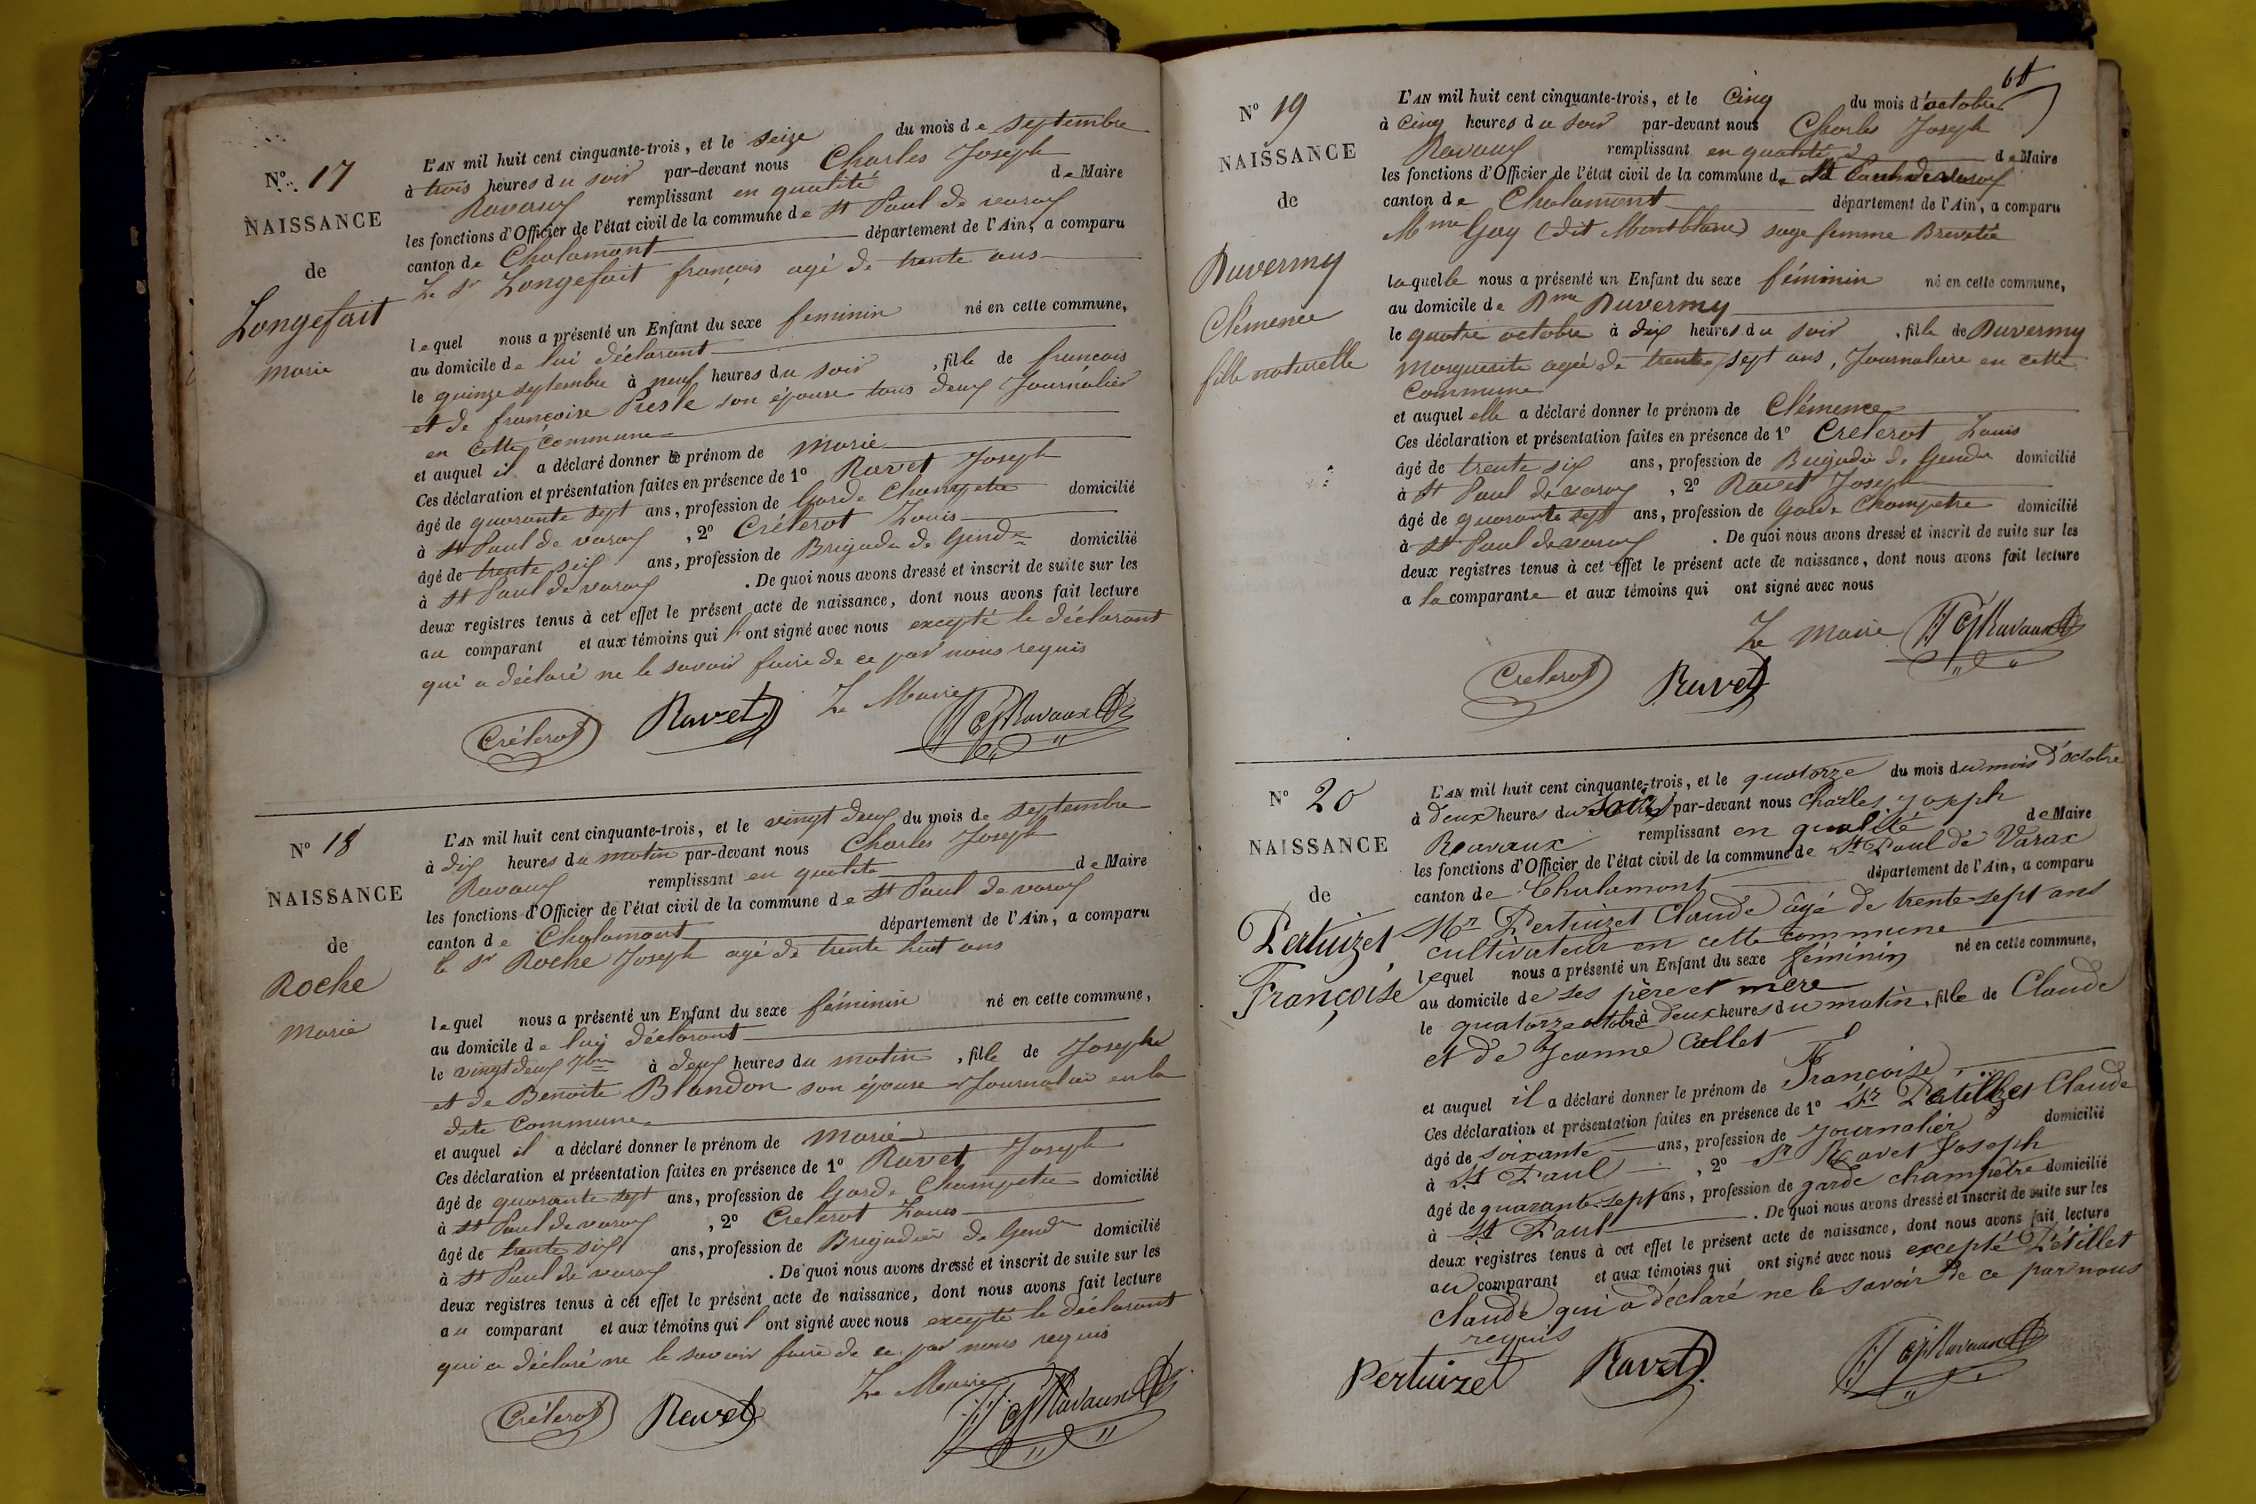 N° 17
NAISSANCE
de
Longefait
Marie
L'AN mil huit cent cinquante-trois, et le seize du mois de septembre
à trois heures du soir par-devant nous Charles Joseph
Ravaux remplissant en qualité de Maire
les fonctions d'Officier de l'état civil de la commune de St Paul de varax
canton de Chalamont département de l'Ain, a comparu
Le Sr Longefait françois agé de trente ans
lequel nous a présenté un Enfant du sexe feminin né en cette commune,
au domicile de lui déclarant
le quinze septembre à neuf heures du soir, fille de francois
et de françoise Presle son épouse tous deux Journalier
en cette commune
et auquel il a déclaré donner le prénom de Marie
Ces déclaration et présentation faites en présence de 1° Ravet Joseph
âgé de quarante sept ans, profession de Garde Champetre domicilié
à St Paul de varax, 2° Créterot Louis
âgé de trente six ans, profession de Brigadier de Gendie domicilié
à St Paul de varax. De quoi nous avons dressé et inscrit de suite sur les
deux registres tenus à cet effet le présent acte de naissance, dont nous avons fait lecture
au comparant et aux témoins qui l'ont signé avec nous excepté le déclarant
qui a déclaré ne le savoir faire de ce par nous requis
Le Maire
Créterot Ravet CJRavaux
N° 18
NAISSANCE
de
Roche
Marie
L'AN mil huit cent cinquante-trois, et le vingt deux du mois de septembre
à dix heures du matin par-devant nous Charles Joseph
Ravaux remplissant en qualité de Maire
les fonctions d'Officier de l'état civil de la commune de St Paul de varax
canton de Chalamont département de l'Ain, a comparu
le Sr Roche Joseph agé de trente huit ans
lequel nous a présenté un Enfant du sexe féminin né en cette commune,
au domicile de lui déclarant
le vingt deux 7bre à deux heures du matin, fille de Joseph
et de Benoite Blandon son épouse Journalier en la
dite Commune
et auquel il a déclaré donner le prénom de Marie
Ces déclaration et présentation faites en présence de 1° Ravet Joseph
âgé de quarante sept ans, profession de Garde Champetre domicilié
à St Paul de varax, 2° Creterot Louis
âgé de trente six ans, profession de Brigadier de Gendie domicilié
à St Paul de varax. De quoi nous avons dressé et inscrit de suite sur les
deux registres tenus à cet effet le présent acte de naissance, dont nous avons fait lecture
au comparant et aux témoins qui l'ont signé avec nous excepté le déclarant
qui a déclaré ne le savoir faire de ce par nous requis
Le Maire
Créterot Ravet CJRavaux
68
N° 19
NAISSANCE
de
Duvermy
Clémence
fille naturelle
L'AN mil huit cent cinquante-trois, et le Cinq du mois d'octobre
à Cinq heures du soir par-devant nous Charles Joseph
Ravaux remplissant en qualité de Maire
les fonctions d'Officier de l'état civil de la commune de St Paul de varax
canton de Chalamont département de l'Ain, a comparu
Mme Guy (dit Montblanc) sage femme Brevetée
laquelle nous a présenté un Enfant du sexe féminin né en cette commune,
au domicile de Dme Duvermy
le quatre octobre à dix heures du soir, fille de Duvermy
Marguerite agée de trente sept ans, Journaliere en cette
Commune
et auquel elle a déclaré donner le prénom de Clémence
Ces déclaration et présentation faites en présence de 1° Creterot Louis
âgé de trente six ans, profession de Brigadier de Gendie domicilié
à St Paul de varax, 2° Ravet Joseph
âgé de quarante sept ans, profession de Garde Champetre domicilié
à St Paul de varax. De quoi nous avons dressé et inscrit de suite sur les
deux registres tenus à cet effet le présent acte de naissance, dont nous avons fait lecture
a la comparante et aux témoins qui ont signé avec nous
Le Maire CJRavaux
Creterot Ravet
N° 20
NAISSANCE
de
Pertuizet
Françoise
L'AN mil huit cent cinquante-trois, et le quatorze du mois du mois d'octobre
à deux heures du soir par-devant nous Charles Joseph
Ravaux remplissant en qualité de Maire
les fonctions d'Officier de l'état civil de la commune de St Paul de Varax
canton de Chalamont département de l'Ain, a comparu
Mr Pertuizet Claude âgé de trente-sept ans
cultivateur en cette commune
lequel nous a présenté un Enfant du sexe féminin né en cette commune,
au domicile de ses père et mère
le quatorze octobre à deux heures du matin, fille de Claude
et de Jeanne Collet
et auquel il a déclaré donner le prénom de Françoise
Ces déclaration et présentation faites en présence de 1° Sr Petillet Claude
âgé de soixante ans, profession de Journalier domicilié
à St Paul, 2° Sr Ravet Joseph
âgé de quarante-sept ans, profession de garde champêtre domicilié
à St Paul. De quoi nous avons dressé et inscrit de suite sur les
deux registres tenus à cet effet le présent acte de naissance, dont nous avons fait lecture
au comparant et aux témoins qui ont signé avec nous excepté Pétillet
Claude qui a déclaré ne le savoir de ce par nous
requis
Pertuizet Ravet CJRavaux